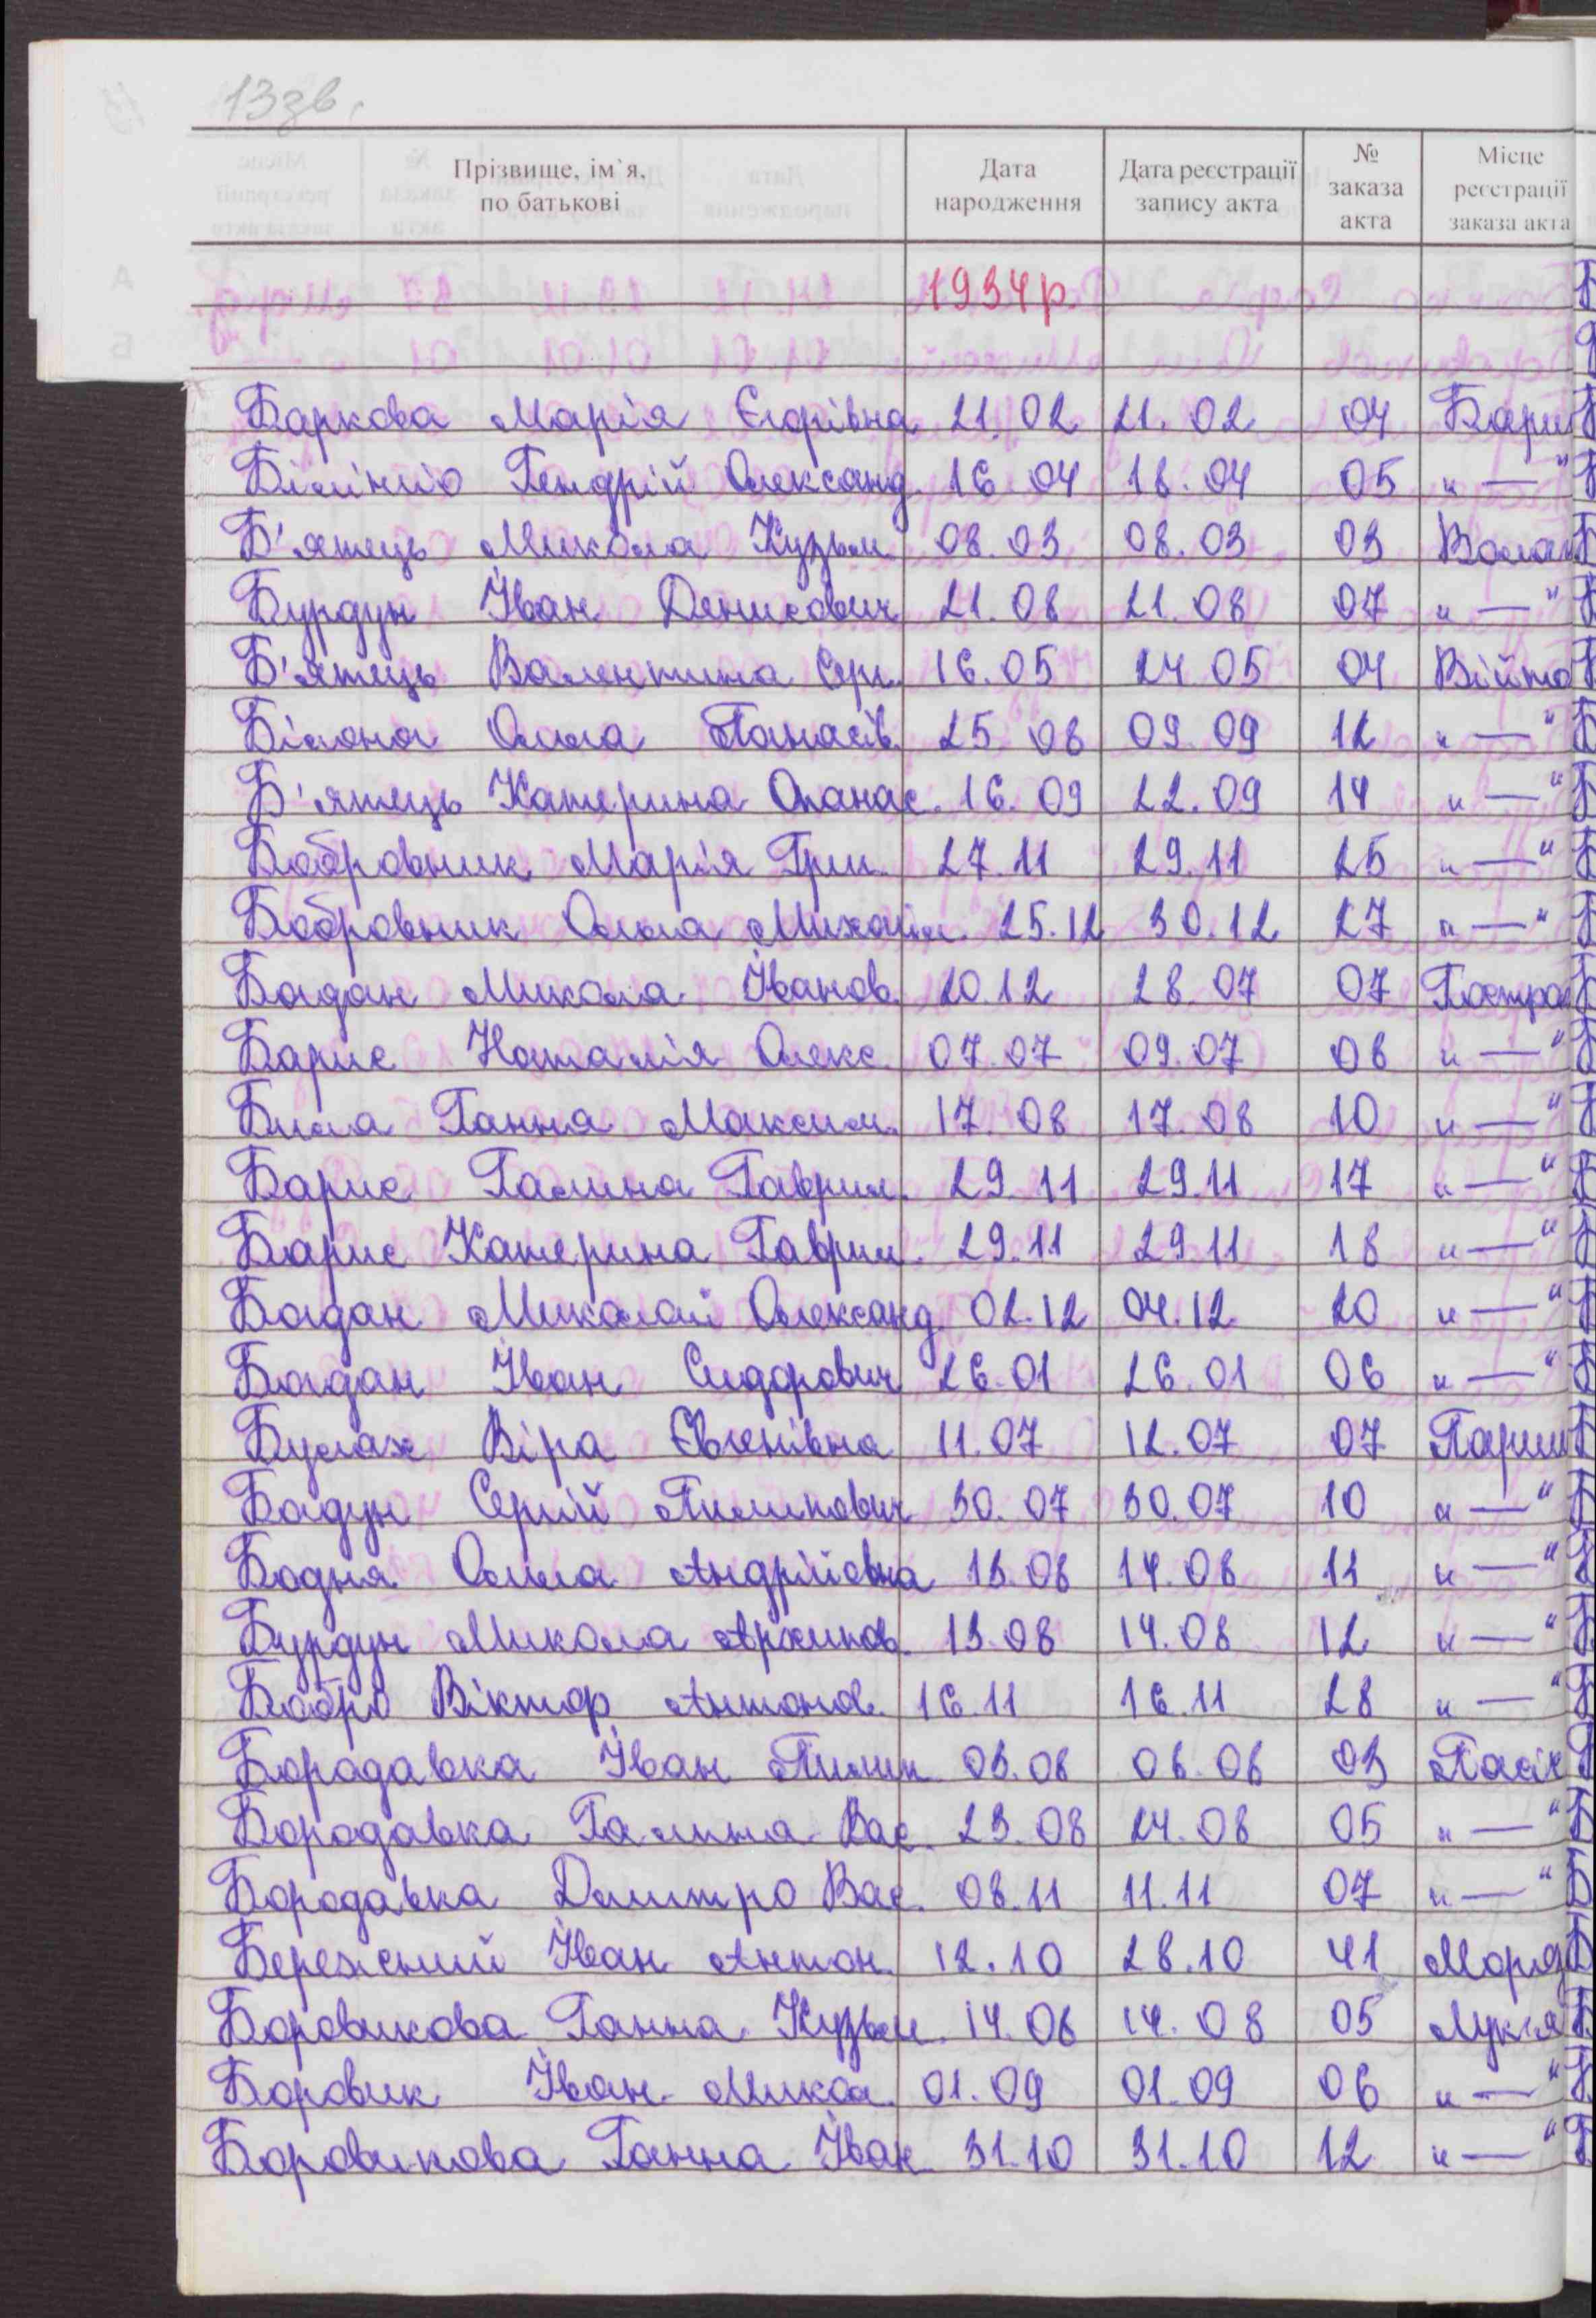 13зв.
Прізвище, ім`я, по батькові | Дата народження | Дата реєстрації запису акта | № заказа акта | Місце реєстрації заказа акта
1934р
Баркова Марія Єгорівна 21.02 21.02 04 Бари
Гендрій Олександ. 16.04 18.04 05 " — "
Б'ятець Микола Кузьм. 08.03 08.03 03
Бурдун Іван Денисович 21.08 21.08 07 " — "
Б'ятець Валентина Серг. 16.05 24.05 04 Війто
Білона Ольга Панасів. 25.08 09.09 12 " — "
Б'ятець Катерина Опанас. 16.09 22.09 14 " — "
Бобровник Марія Григ. 27.11 29.11 25 " — "
Бобровник Ольга Михайл. 25.12 30.12 27 " — "
Богдан Микола Іванов. 20.12 28.07 07 Гостро
Барис Наталія Олекс. 07.07 09.07 08 " — "
Била Ганна Максим. 17.08 17.08 10 " — "
Барис Галина Гаврил. 29.11 29.11 17 " — "
Барис Катерина Гаврил. 29.11 29.11 18 " — "
Богдан Миколай Олександ. 02.12 04.12 20 " — "
Богдан Іван Сидорович 26.01 26.01 06 " — "
Булах Віра Євгенівна 11.07 12.07 07 Париш
Богдун Сергій Пилипович 30.07 30.07 10 " — "
Бодня Ольга Андріївна 13.08 14.08 11 " — "
Бурдун Микола Архипов. 13.08 14.08 12 " — "
Бобро Віктор Антонов. 16.11 16.11 28 " — "
Бородавка Іван Пилип. 03.08 06.08 03 Пасіч
Бородавка Галина Вас. 23.08 24.08 05 " — "
Бородавка Дмитро Вас. 08.11 11.11 07 " — "
Бережний Іван Антон. 12.10 28.10 41 Моряз
Боровикова Ганна Кузьм. 14.08 14.08 05 Лук'я
Боровик Іван Микол. 01.09 01.09 06 " — "
Боровикова Ганна Іван. 31.10 31.10 12 " — "